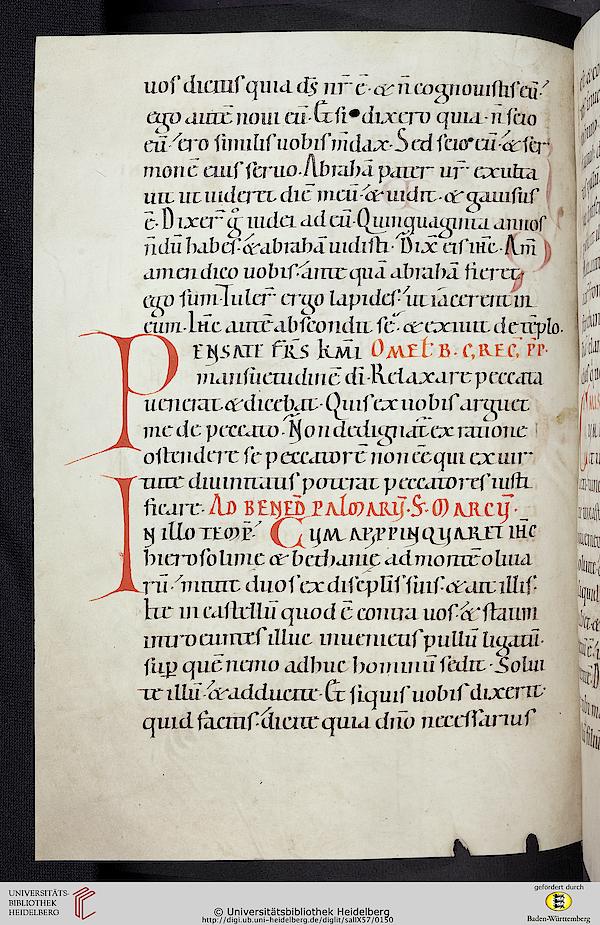 uos dicitis quia d̄s nr̄ ē. & n̄ cognouistis eū.
ego autē noui eū. Et si dixero quia n̄ scio
eū. ero similis uobis m̄dax. Sed scio eū. & ser
monē eius seruo. Abrahā pater ur̄ exulta
uit ut uideret diē meū. & uidit. & gauisus
ē. Dixer̄ g iudei ad eū. Quinquaginta annos
n̄dū habes. & abrahā uidisti. Dix̄ eis ih̄c. Am̄
amen dico uobis. ante quā abrahā fieret.
ego sum. Tuler̄ ergo lapides. ut iacerent in
eum. Ih̄c autē abscondit se. & exiuit de tēplo.
PENSATE FR̄S K̄MI OMEL B. GREG, PP.
mansuetudinē dī. Relaxare peccata
uenerat. & dicebat. Quis ex uobis arguet
me de peccato. Non dedignat̄ ex ratione
ostendere se peccatorē non ēe qui ex uir
tute diuinitatis poterat peccatores iusti
ficare. AD BENED PALMARŪ. S. MARCŪ.
IN ILLO TEMP̄. CUM APPPINQUARET IH̄C
hierosolime & bethanie ad montē oliua
rū. mittit duos ex discipl̄is suis. & ait illis.
Ite in castellū quod ē contra uos. & statim
introeuntes illuc inuenietis pullū ligatū.
sup quē nemo adhuc hominū sedit. Solui
te illū. & adducite. Et siquis uobis dixerit.
quid facitis. dicite quia dn̄o necessarius
UNIVERSITÄTS-
BIBLIOTHEK
HEIDELBERG
© Universitätsbibliothek Heidelberg
http://digi.ub.uni-heidelberg.de/diglit/salIX57/0150
gefördert durch
Baden-Württemberg